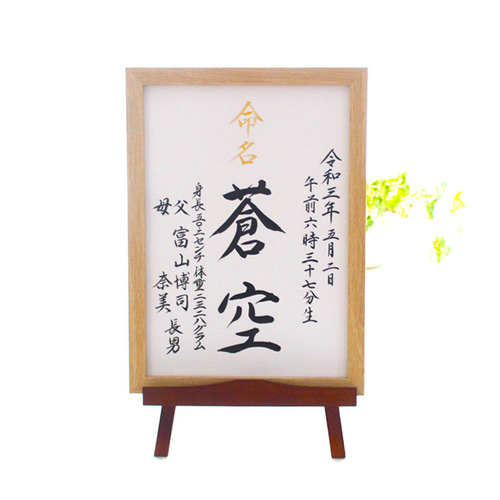 命名
令和三年五月二日
午前六時三十七分生
蒼空
身長五〇.二センチ体重二三二八グラム
父 富山博司 長男
母 奈美